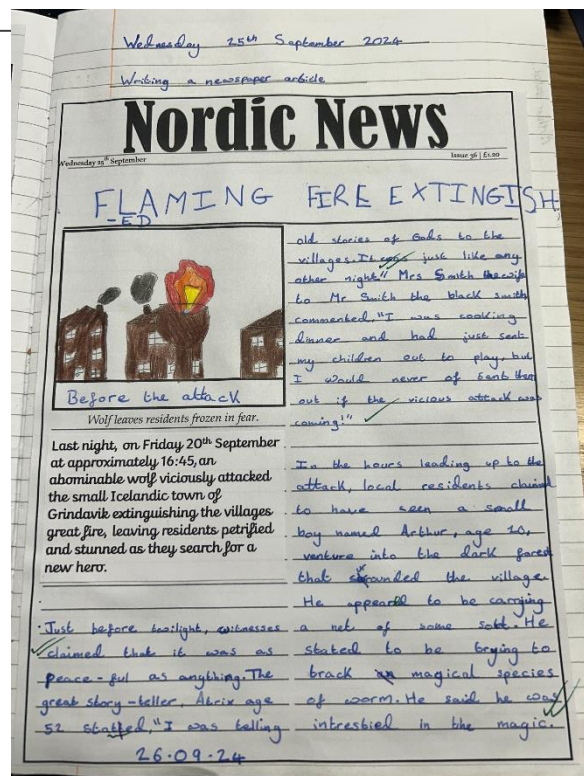 Wednesday 25th September 2024
Writing a newspaper article
Nordic News
Wednesday 25th September
Issue 36 | £1.20
FLAMING FIRE EXTINGISH
-ED
Before the attack
Wolf leaves residents frozen in fear.
Last night, on Friday 20th September
at approximately 16:45, an
abominable wolf viciously attacked
the small Icelandic town of
Grindavik extinguishing the villages
great fire, leaving residents petrified
and stunned as they search for a
new hero.
Just before twilight, witnesses
claimed that it was as
peace-ful as anything. The
great story-teller, Atrix age
52 statted, "I was telling
26.09.24
old stories of Gods to the
villages. It was just like any
other night" Mrs Smith the wife
to Mr Smith the black smith
commented, "I was cooking
dinner and had just sent
my children out to play, but
I would never of sent them
out if the vicious attack was
coming!"
In the hours leading up to the
attack, local residents claimed
to have seen a small
boy named Arthur, age 10,
venture into the dark forest
that the village.
He appeared to be carrying
a net of some sott. He
stated to be trying to
track magical species
of worm. He said he was
intrestied in the magic.